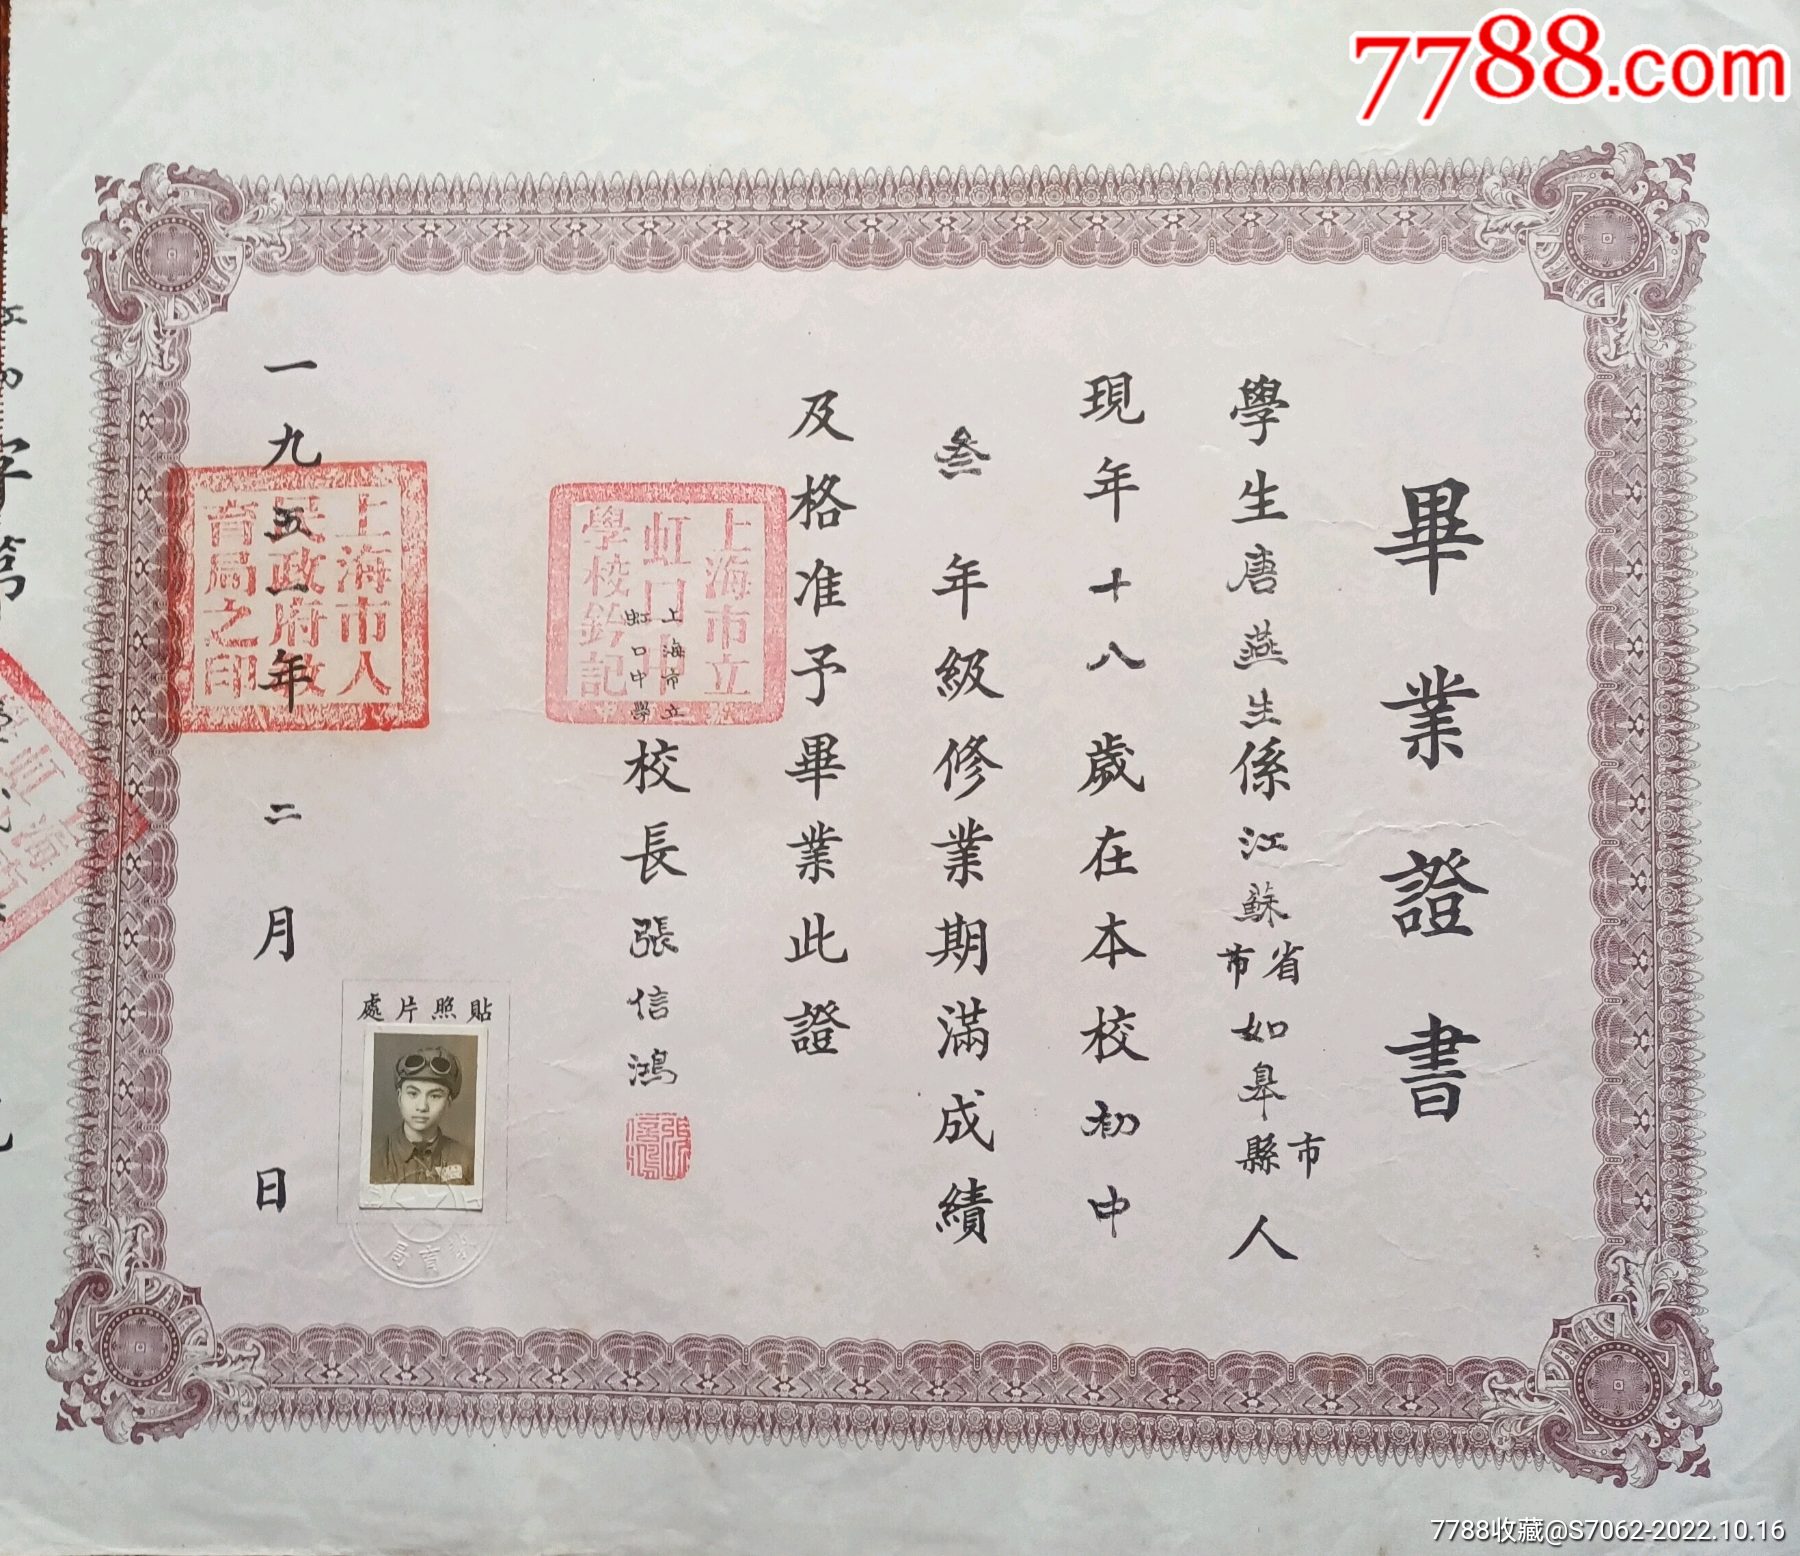 7788.com
畢業證書
學生唐燕生係江蘇省市如皋市縣人
現年十八歲在本校初中
叁年級修業期滿成績
及格准予畢業此證
上海市立
虹口中學
校長張信鴻
上海市立虹口中學校鈐記
張信鴻
貼照片處
教育局
一九五一年二月日
上海市人民政府教育局之印
字第
7788收藏@S7062-2022.10.16